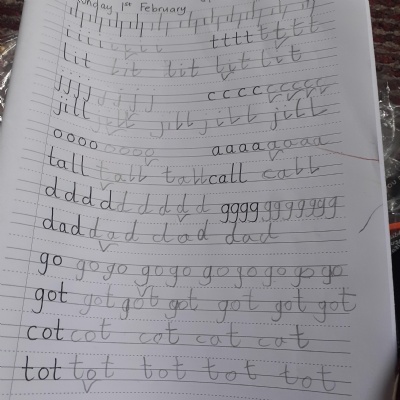 Sunday 1st February
i i i i i t t t t t t t t t t t t
lit lit lit lit lit
j j j j j j j j j c c c c c c c c c
jill jill jill jill jill
o o o o o o o o a a a a a a a a
tall tall tall call call
d d d d d d d d d g g g g g g g g g g g
dad dad dad dad
go go go go go go go go go go
got got got got got got got
cot cot cot cat cat
tot tot tot tot tot